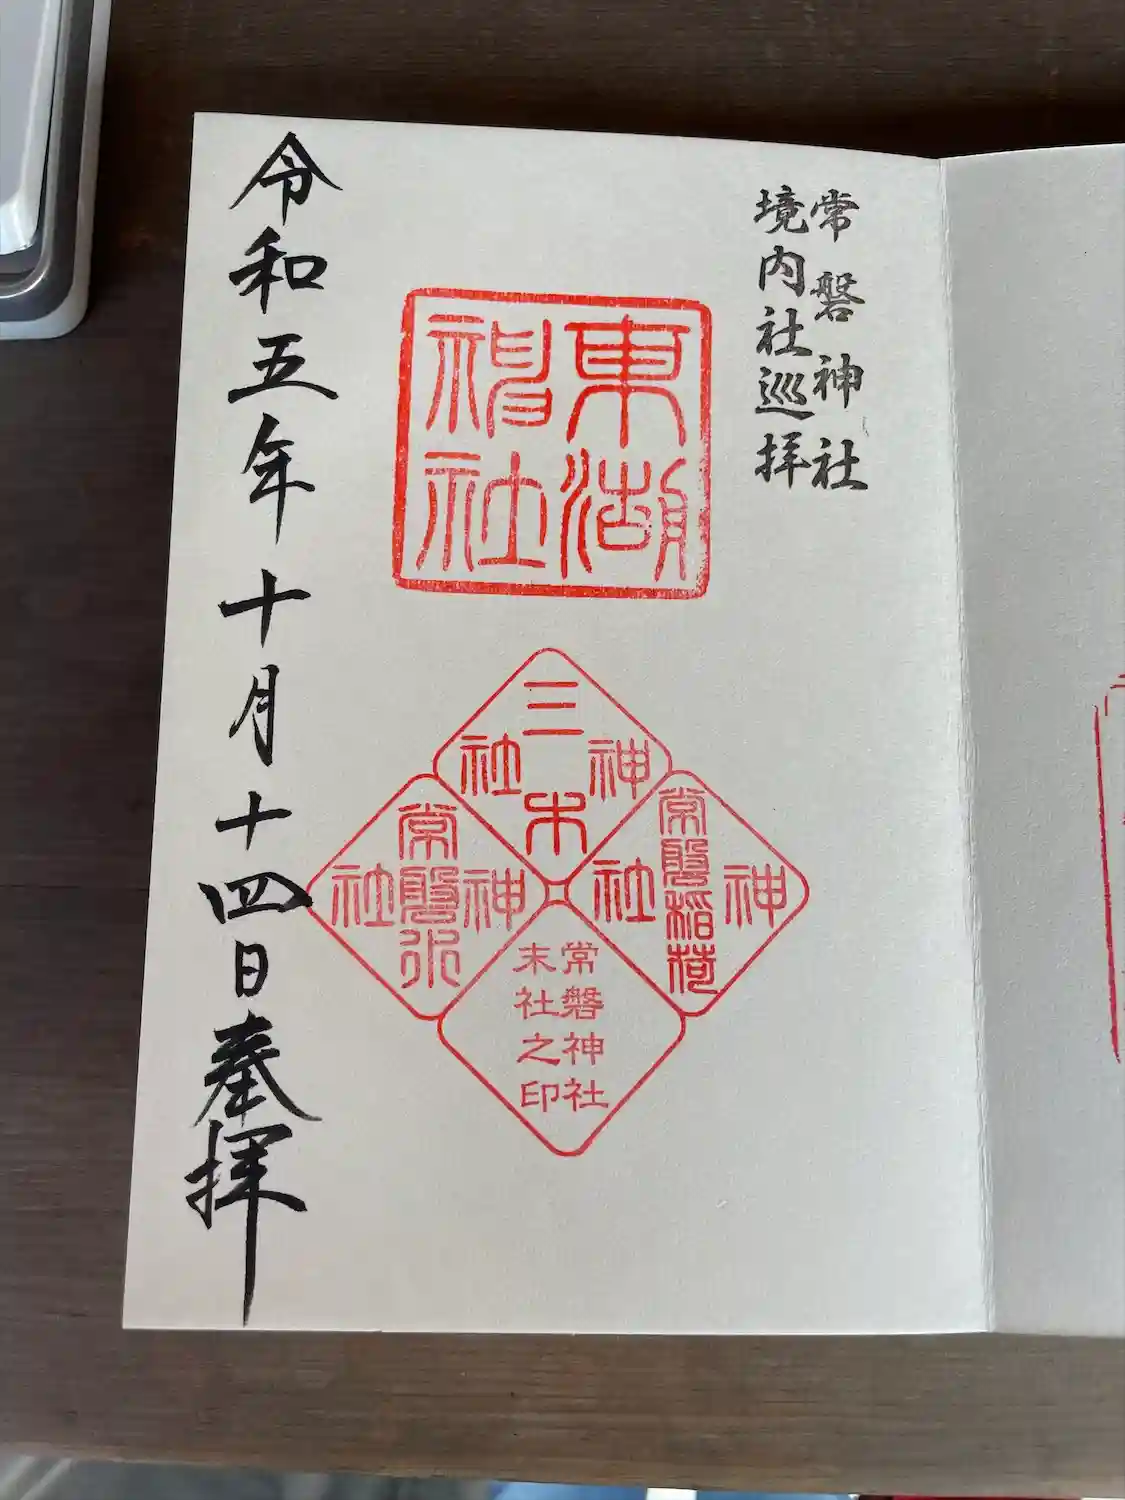 常磐神社
境内社巡拝
東湖
神社
三木
神社
常磐稲荷
神社
常磐水
神社
常磐神社
末社之印
令和五年十月十四日奉拝